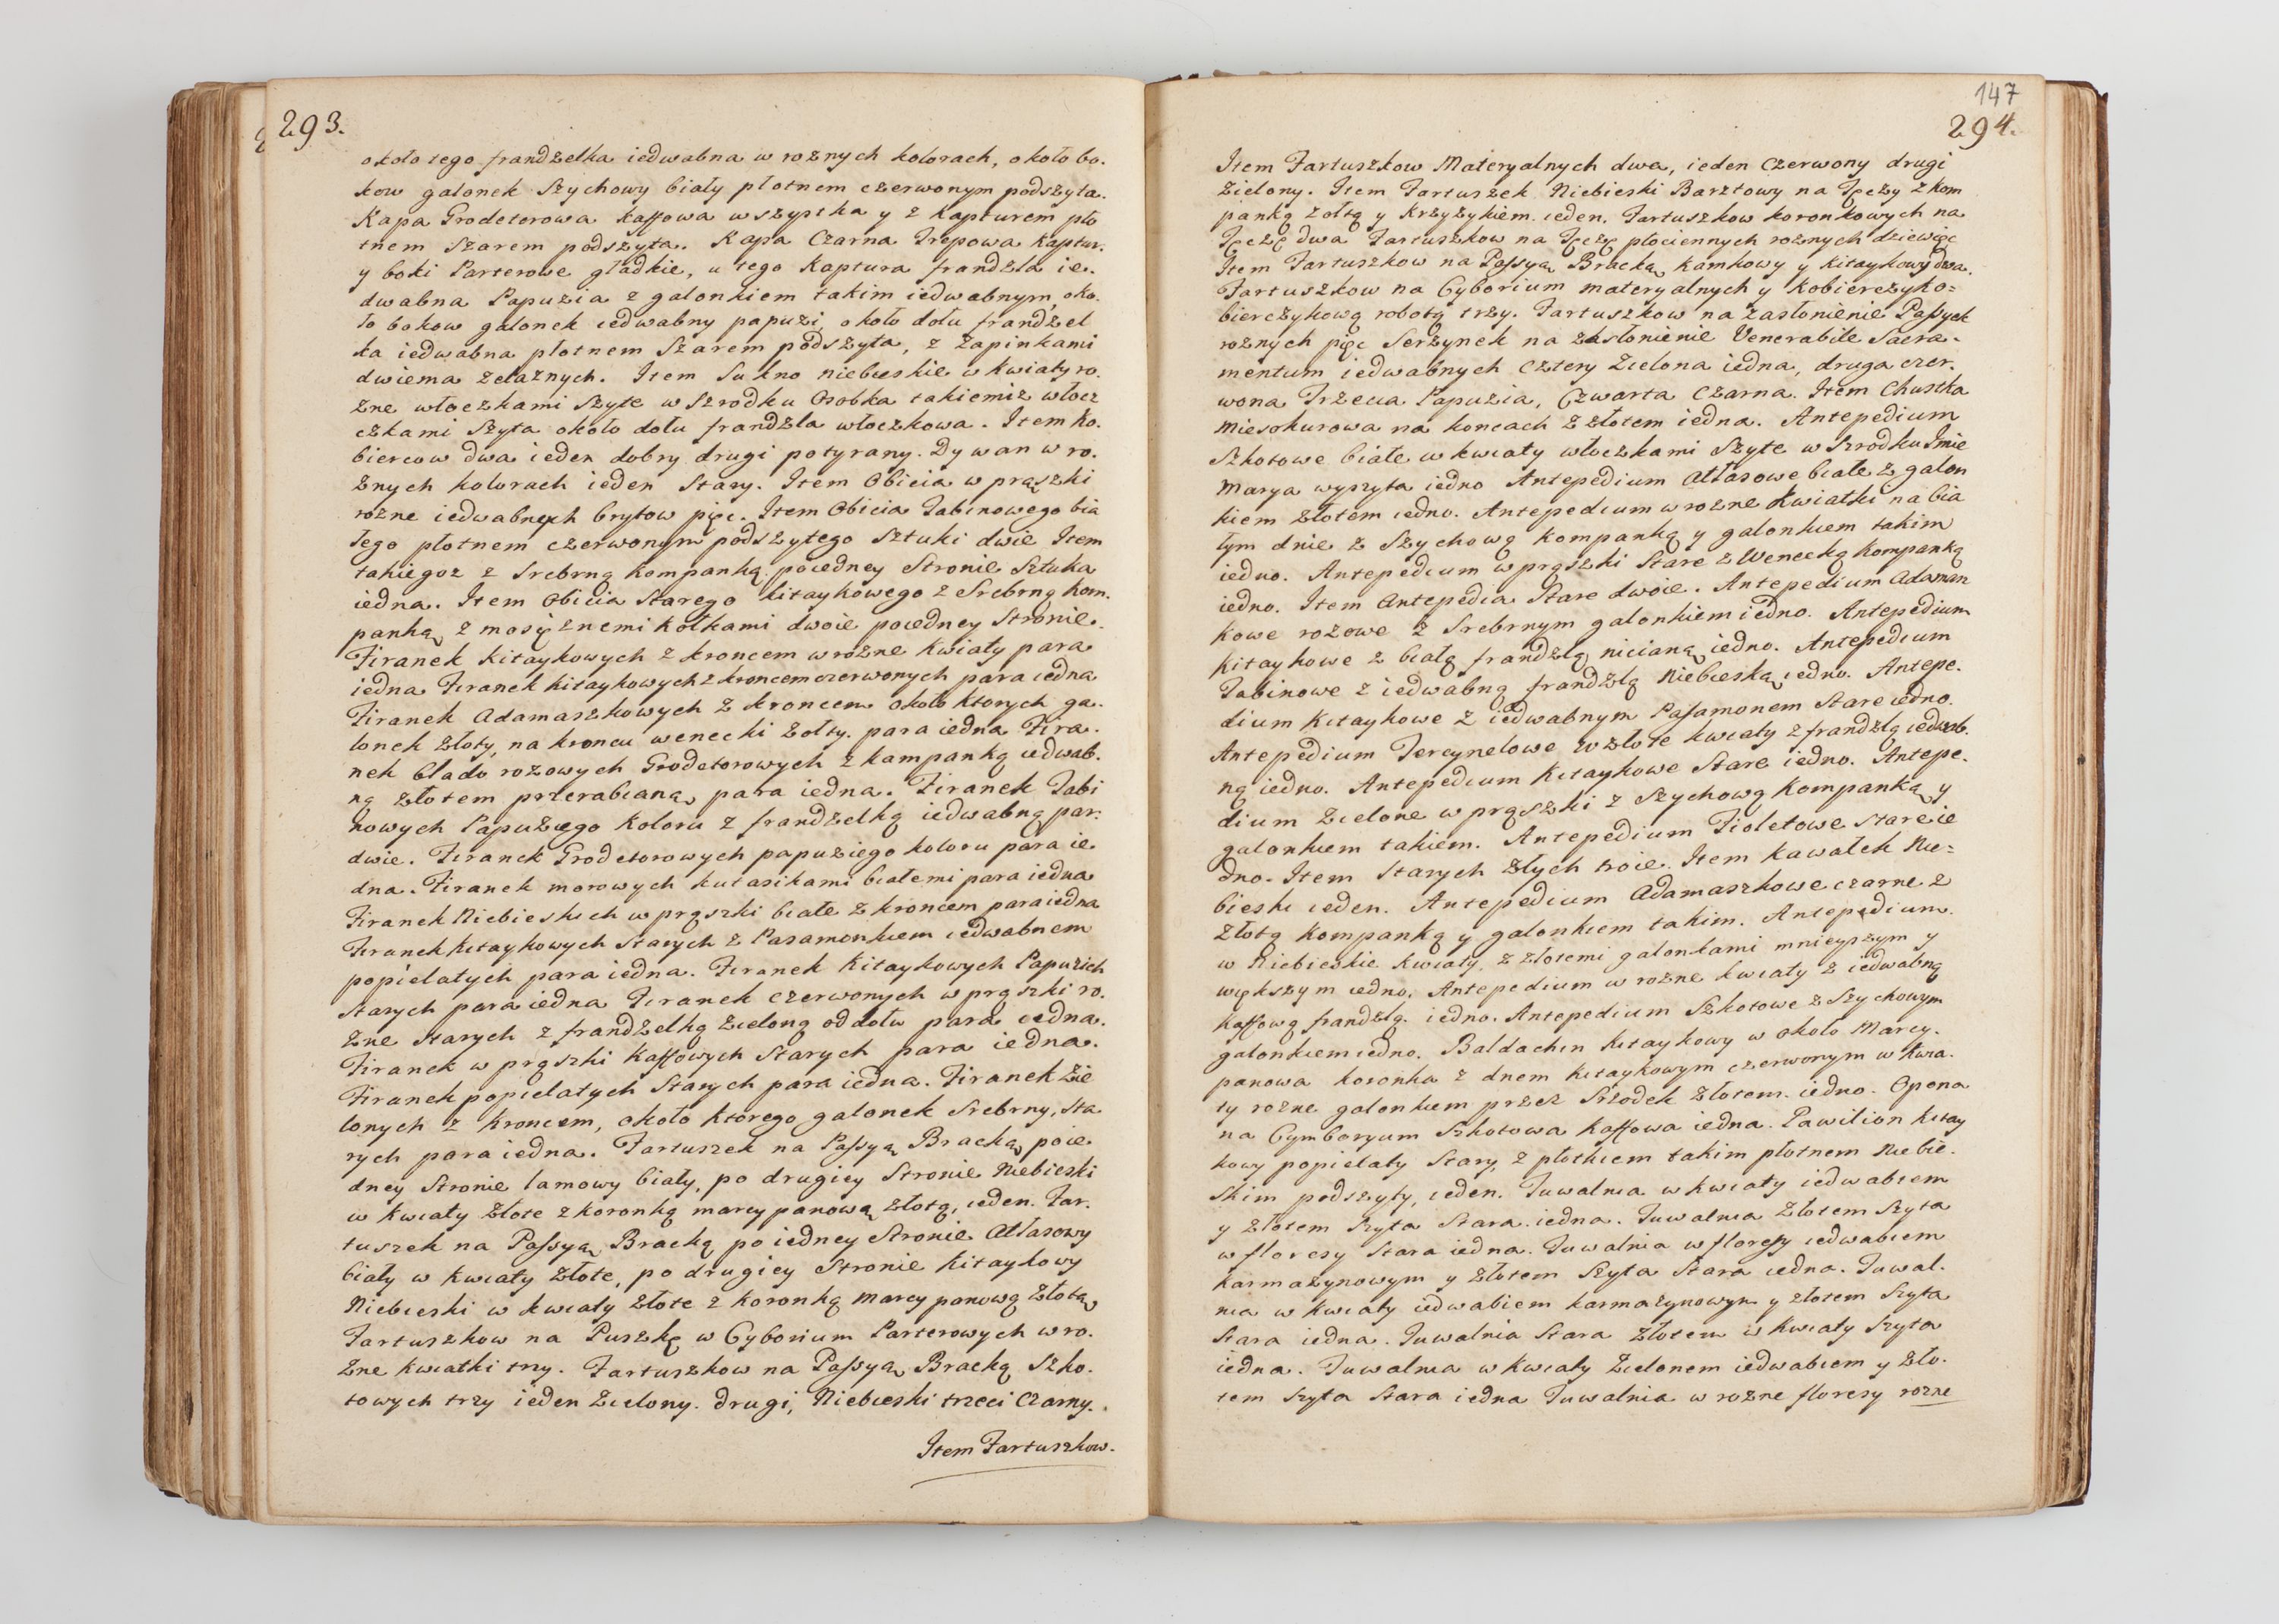 293.
około tego frandzelka iedwabna w roznych kolorach, około bo.
kow galonek Szychowy biały płotnem czerwonym podszyta.
Kapa Grodetorowa kaffowa wszystka y z kapturem pło
tnem Szarem podszyta. Kapa Czarna Trepowa kaptur.
y boki Parterowe gładkie, u tego Kaptura frandzla ie.
dwabna Papuzia z galonkiem takim iedwabnym, oko.
ło bokow galonek iedwabny papuzi, około dołu frandzel
ka iedwabna płotnem Szarem podszyta, z zapinkami
dwiema zelaznych. Item Sukno niebieskie w kwiaty ro.
zne włoczkami Szyte w Szrodku Osobka takiemiz włocz
czkami Szyta około dołu frandzla włoczkowa. Item Ko.
biercow dwa ieden dobry drugi potyrany. Dywan w ro.
znych kolorach ieden Stary. Item Obicia w prązki
rozne iedwabnych brytow pięc. Item Obicia Tabinowego bia
łego płotnem czerwonym podszytego Sztuki dwie Item
takiegoz z Srebrną kompanką poiedney Stronie Sztuka
iedna. Item Obicia Starego kitaykowego z Srebrną Kom.
panką z mosięznemi kołkami dwoie poiedney Stronie.
Firanek kitaykowych z kroncem w rozne kwiaty para
iedna Firanek kitaykowych z kroncem czerwonych para iedna
Firanek Adamaszkowych z kroncem około ktorych ga.
lonek złoty, na kroncu wenecki zołty. para iedna Fira.
nek blado rozowych Grodetorowych z kampanką iedwab.
ną złotem przerabianą para iedna. Firanek Tabi
nowych Papuziego Koloru z frandzelką iedwabną par:
dwie. Firanek Grodetorowych papuziego koloru para ie
dna. Firanek morowych kutasikami białemi para iedna
Firanek Niebieskich w prązki białe z kroncem para iedna
Firanek kitaykowych starych z Pasamonkiem iedwabnem
popielatych para iedna. Firanek Kitaykowych Papuzich
starych para iedna Firanek czerwonych w prązki ro.
zne starych z frandzelką zieloną od dołu para iedna.
Firanek w prązki Kaffowych Starych para iedna.
Firanek popielatych Starych para iedna. Firanek zie
lonych z kroncem, około ktorego galonek Srebrny, sta
rych para iedna. Fartuszek na Passyą Bracką poie
dney Stronie lamowy biały, po drugiey Stronie Niebieski
w kwiaty złote z koronką marcypanową złotą, ieden. Far.
tuszek na Passyą Bracką po iedney Stronie Atłasowy
biały w kwiaty złote, po drugiey Stronie kitaykowy
Niebieski w kwiaty złote z koronką marcypanową złotą
Fartuszkow na Puszkę w Cyborium Parterowych w ro.
zne kwiatki trzy. Fartuszkow na Passyą Bracką Szko.
towych trzy ieden zielony. drugi, Niebieski trzeci Czarny.
Item Fartuszkow.
147
294.
Item Fartuszkow Materyalnych dwa, ieden czerwony drugi
zielony. Item Fartuszek Niebieski Barztowy na Tęczy z kom
panką zołtą y krzyzykiem ieden. Fartuszkow koronkowych na
Tęczę dwa Fartuszkow na Tęczę płociennych roznych dziewięc
Item Fartuszkow na Passyą Bracką kamkowy y kitaykowy dwa.
Fartuszkow na Cyborium materyalnych y Kobierczyko=
bierczykową robotą trzy. Fartuszkow na zasłonienie Passyek
roznych pięc Serzynek na zasłonienie Venerabile Sacra.
mentum iedwabnych cztery zielona iedna, druga czer.
wona Trzecia Papuzia, Czwarta Czarna. Item Chustka
Miesokurowa na koncach z złotem iedna. Antepedium
Szkotowe białe w kwiaty włoczkami Szyte w Szrodku Imie
Marya wyszyta iedno Antepedium Atłasowe białe z galon
kiem złotem iedno. Antepedium w rozne kwiatki na bia
łym dnie z Szychową kompanką y galonkiem takim
iedno. Antepedium w prązki Stare z Wenecką kompanką
iedno. Item Antepedia Stare dwoie. Antepedium Adaman
kowe rozowe z Srebrnym galonkiem iedno. Antepedium
Kitaykowe z białą frandzlą nicianą iedno. Antepedium
Tabinowe z iedwabną frandzlą Niebieską iedno. Antepe.
dium Kitaykowe z iedwabnym Passamonem Stare iedno.
Antepedium Tercynelowe w złote kwiaty z frandzlą iedwab.
ną iedno. Antepedium Kitaykowe Stare iedno. Antepe.
dium zielone w prązki z Szychową kompanką y
galonkiem takiem. Antepedium Fioletowe stare ie
dno. Item starych złych troie. Item kawałek Nie=
bieski ieden. Antepedium Adamaszkowe czarne z
złotą kompanką y galonkiem takim. Antepedium
w Niebieskie kwiaty z złotemi galonkami mnieyszym y
większym iedno. Antepedium w rozne kwiaty z iedwabną
kaffową frandzlą iedno. Antepedium Szkotowe z Szychowym
galonkiem iedno. Baldachin kitaykowy w około Marcy.
panowa koronka z dnem kitaykowym czerwonym w kwia.
ty rozne galonkiem przez Srzodek złotem iedno. Opona
na Cymboryum Szkotowa Kaffowa iedna. Pawilion kitay
kowy popielaty Stary, z płotkiem takim płotnem Niebie.
skim podszyty, ieden. Tuwalnia w kwiaty iedwabiem
y złotem Szyta Stara iedna. Tuwalnia złotem Szyta
w floresy Stara iedna. Tuwalnia w floresy iedwabiem
karmazynowym y złotem Szyta Stara iedna. Tuwal.
nia w kwiaty iedwabiem karmazynowym y złotem Szyta
Stara iedna. Tuwalnia Stara złotem w kwiaty Szyta
iedna. Tuwalnia w kwiaty zielonem iedwabiem y zło.
tem Szyta Stara iedna Tuwalnia w rozne floresy rozne